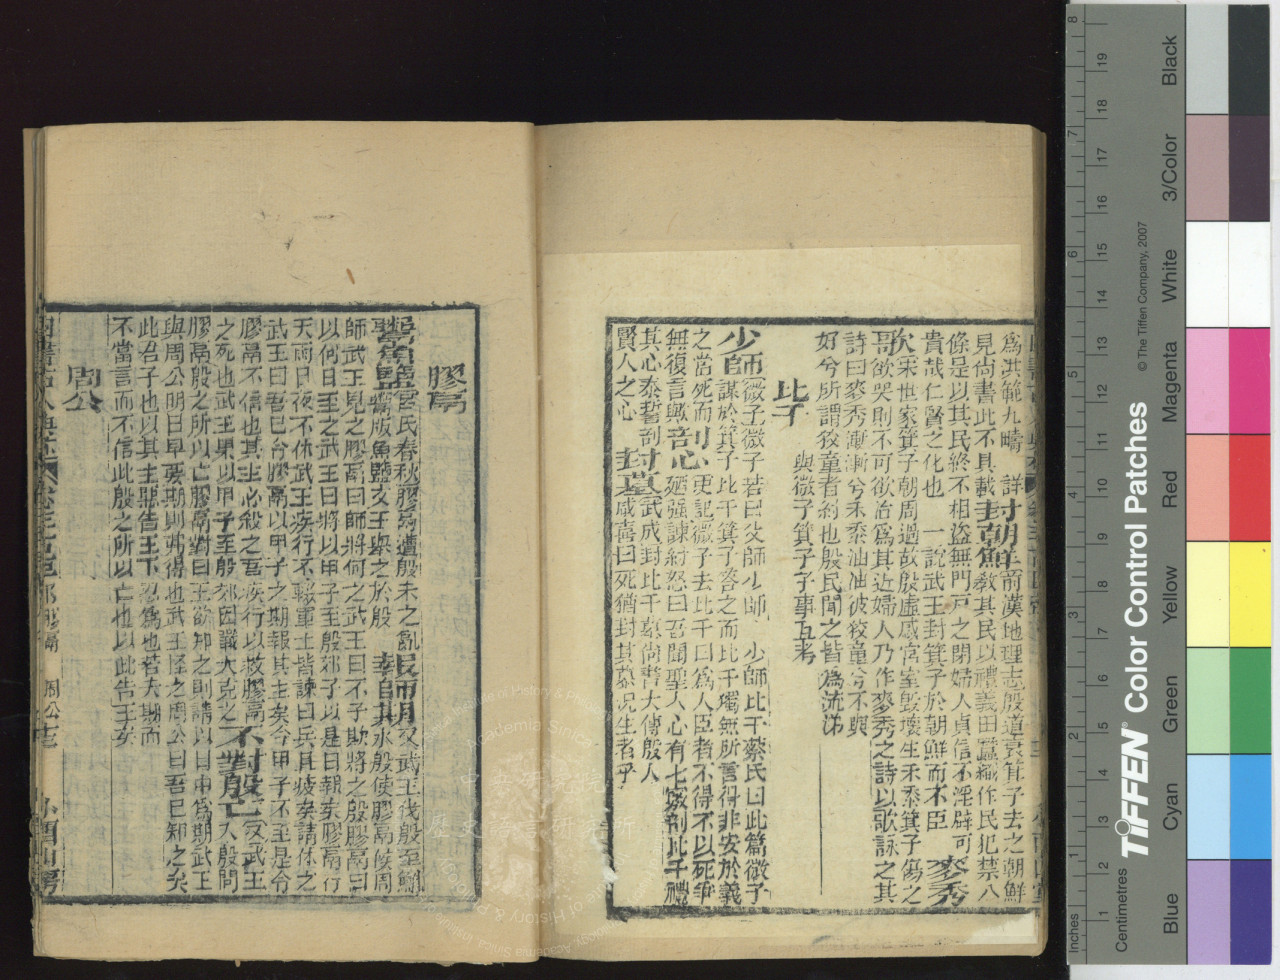 為洪範九疇　詳
見尚書此不具載封朝鮮前漢地理志殷道衰箕子去之朝鮮
教其民以禮義田蠶織作民犯禁八
條是以其民終不相盜無門戸之閉婦人貞信不淫辟可
貴哉仁賢之化也　一說武王封箕子於朝鮮而不臣　麥秀
歌宋世家箕子朝周過故殷虛感宮室毀壞生禾黍箕子傷之
欲哭則不可欲泣為其近婦人乃作麥秀之詩以歌詠之其
詩曰麥秀漸漸兮禾黍油油彼狡童兮不與
好兮所謂狡童者紂也殷民聞之皆為流涕
比干　與微子箕子字事互考
少師微子微子若曰父師少師　少師比干蔡氏曰此篇微子
謀於箕子比干箕子答之而比干獨無所言得非安於義
之當死而剖心史記微子去比干曰為人臣者不得不以死爭
無復言歟　廼強諫紂怒曰吾聞聖人心有七竅剖比干
其心泰誓剖封墓武成封比干墓尚書大傳殷人
賢人之心　咸喜曰死猶封其墓况生者乎
膠鬲
舉魚鹽呂氏春秋膠鬲遭殷末之亂報師期又武王伐殷至鮪
鬻販魚鹽文王舉之於殷　水殷使膠鬲候周
師武王見之膠鬲曰師將何之武王曰不子欺將之殷膠鬲曰
以何日至之武王曰將以甲子至殷郊子以是日報矣膠鬲行
天雨日夜不休武王疾行不輟軍士皆諫曰兵其疲矣請休之
武王曰吾已令膠鬲以甲子之期報其主矣今甲子不至是令
膠鬲不信也其主必殺之吾疾行以救膠鬲不對殷亡又武王
之死也武王果以甲子至殷郊因議大克之入殷問
膠鬲殷之所以亡膠鬲對曰王欲知之則請以日中為期武王
與周公明日早要期則弗得也武王怪之周公曰吾已知之矣
此君子也以其主惡告王不忍為也若夫期而
不當言而不信此殷之所以亡也以此告王矣
周公
膠鬲　周公
小酉山房
Centimetres
Inches
TIFFEN® Color Control Patches
© The Tiffen Company, 2007
Blue
Cyan
Green
Yellow
Red
Magenta
White
3/Color
Black